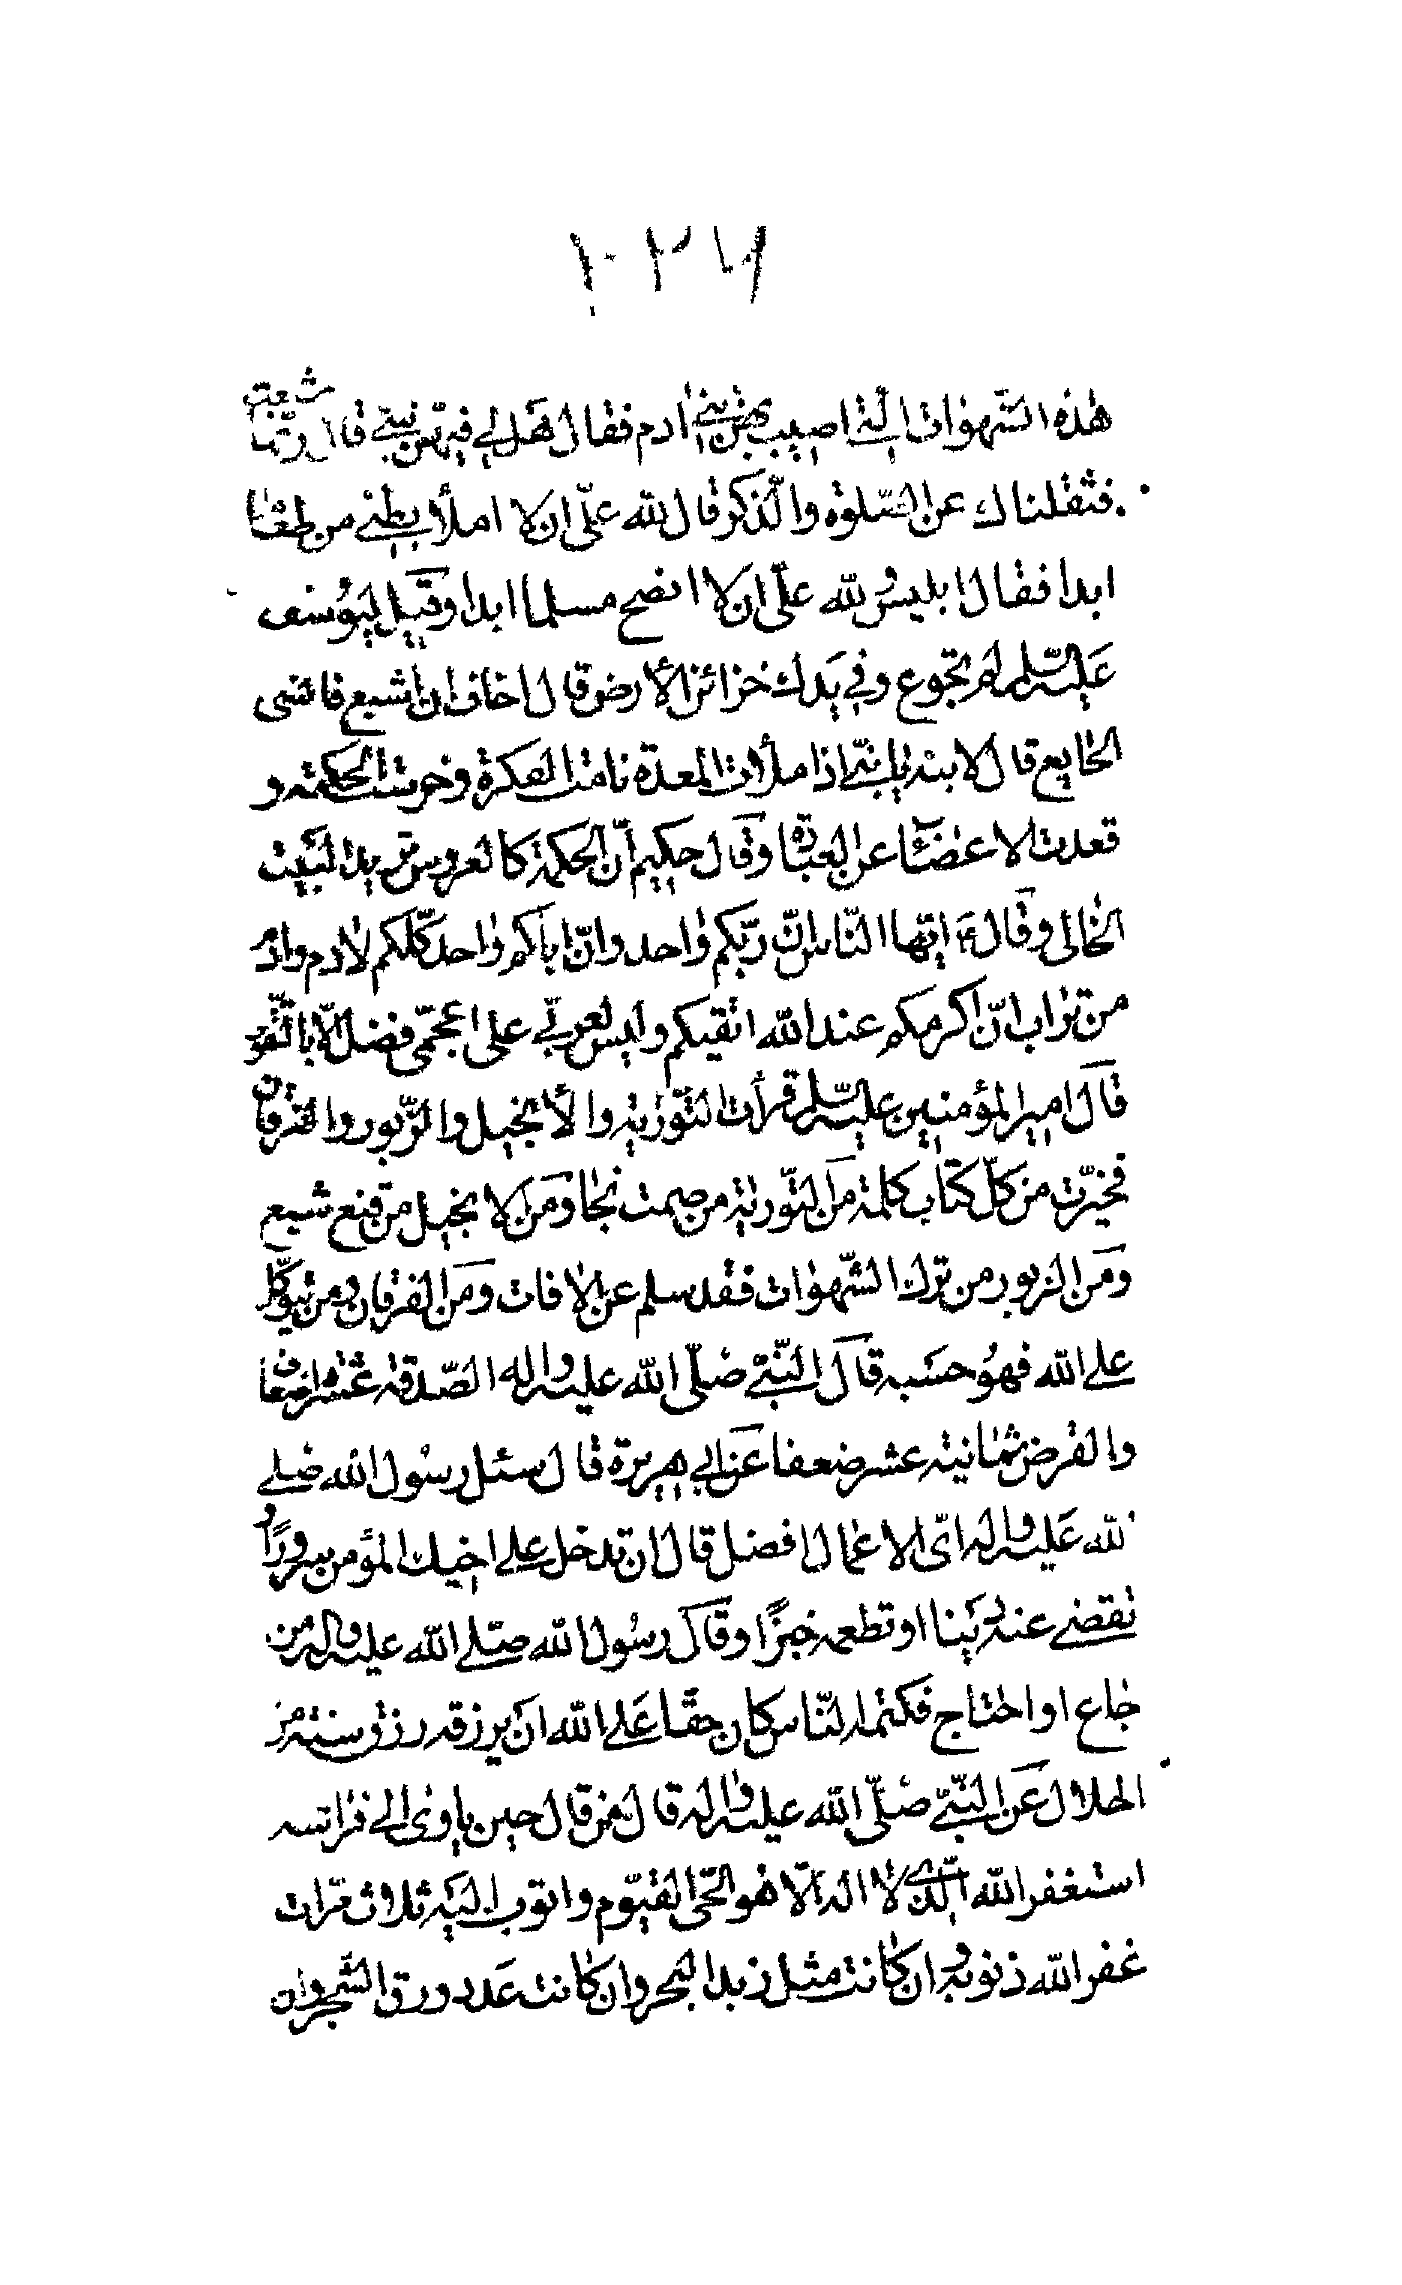 ١٠٣٦
هذه الشّهوات الّتي اصيب بهنّ بني ادم فقال هل لي فيهنّ شيئ قال ربّما شبعت
فثقلناك عن الصّلوة والذّكر قال لله علىّ ان لا املأ بطني من طعام
ابدا فقال ابليس ولله علىّ ان لا انصح مسلما ابدا وقيل ليوسف
عليه السّلم لم تجوع وفي يدك خزائن الأرض قال اخاف ان اشبع فانسى
الجايع قال لابنه يا بنيّ اذا ملأت المعدة نامت الفكرة وخرست الحكمة و
قعدت الاعضاء عن العبادة وقال حكيم انّ الحكمة كالعروس تريد البيت
الخالى وقال ع ايّها النّاس انّ ربّكم واحد وانّ اباكم واحد كلّكم لادم وادم
من تراب انّ اكرمكم عند الله اتقيكم وليس لعربيّ على اعجمّى فضل الّا بالتّقوى
قال امير المؤمنين عليه السّلم قرأت التّورية والأنجيل والزّبور والفرقان
فخيّرت من كلّ كتاب كلمة من التّورية من صمت نجا ومن الانجيل من قنع شبع
ومن الزبور من ترك الشّهوات فقد سلم عن الافات ومن الفرقان ومن يتوكّل
على الله فهو حسبه قال النّبيّ صلّى الله عليه واله الصّدقة عشر اضعاف
والقرض ثمانية عشر ضعفا عن ابي هريرة قال سئل رسول الله صلى
لله عليه واله اىّ الاعمال افضل قال ان تدخل على اخيك المؤمن سرورًا او
تقضى عنه دينا او تطعمه خبزًا وقال رسول الله صلى الله عليه واله من
جاع او احتاج فكتمه النّاس كان حقّا على الله ان يرزقه رزق سنة من
الحلال عن النّبيّ صلّى الله عليه واله قال من قال حين ياوى الى فراشه
استغفر الله الّذى لا اله الّا هو الحىّ القيّوم واتوب اليه ثلاث مرّات
غفر الله ذنوبه وان كانت مثل زبد البحر وان كانت عدد ورق الشّجر وان